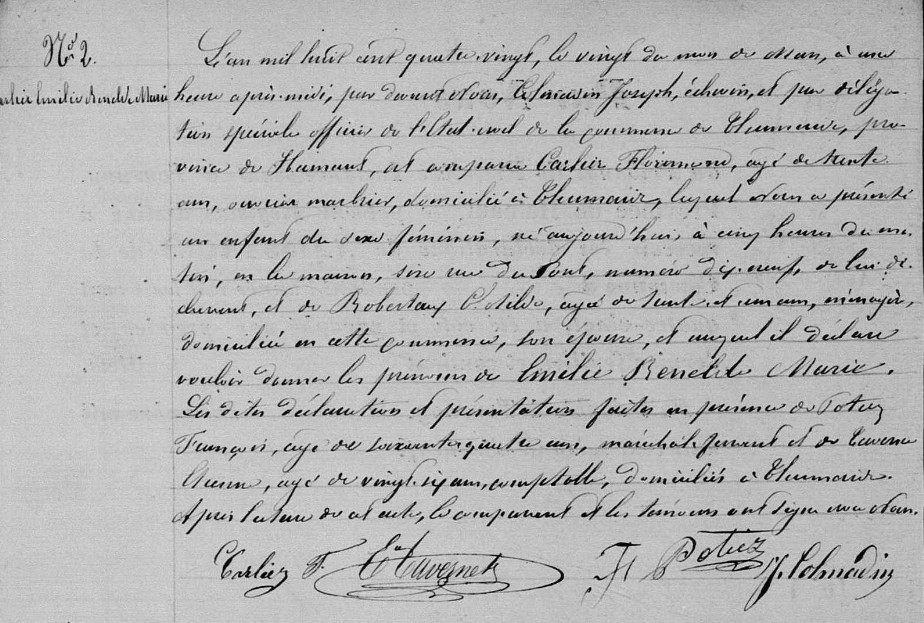 No 2.
Carlier Emilie Renelde Marie
L'an mil huit cent quatre-vingt, le vingt du mois de Mars, à une
heure après-midi, par devant Nous, Colmadin Joseph, échevin, et par déléga-
tion spéciale officier de l'Etat-civil de la commune de Thumaide, pro-
vince de Hainaut, est comparu Carlier Florimond, agé de trente
ans, ouvrier marbrier, domicilié à Thumaide, lequel Nous a présenté
un enfant du sexe féminin, né aujourd'hui, à cinq heures du ma-
tin, en la maison, sise rue du Pont, numéro dix-neuf, de lui dé-
clarant, et de Robertaux Clotilde, agée de trente-et-un ans, ménagère,
domiciliée en cette commune, son épouse, et auquel il déclare
vouloir donner les prénoms de Emilie Renelde Marie.
Les dites déclaration et présentation faites en présence de Potiez
François, agé de soixante-quatre ans, maréchal-ferrant et de Taverne
Etienne, agé de vingt-six ans, comptable, domiciliés à Thumaide.
Après lecture de cet acte, le comparant et les témoins ont signé avec Nous.
Carliez F. Potiez J. Colmadin